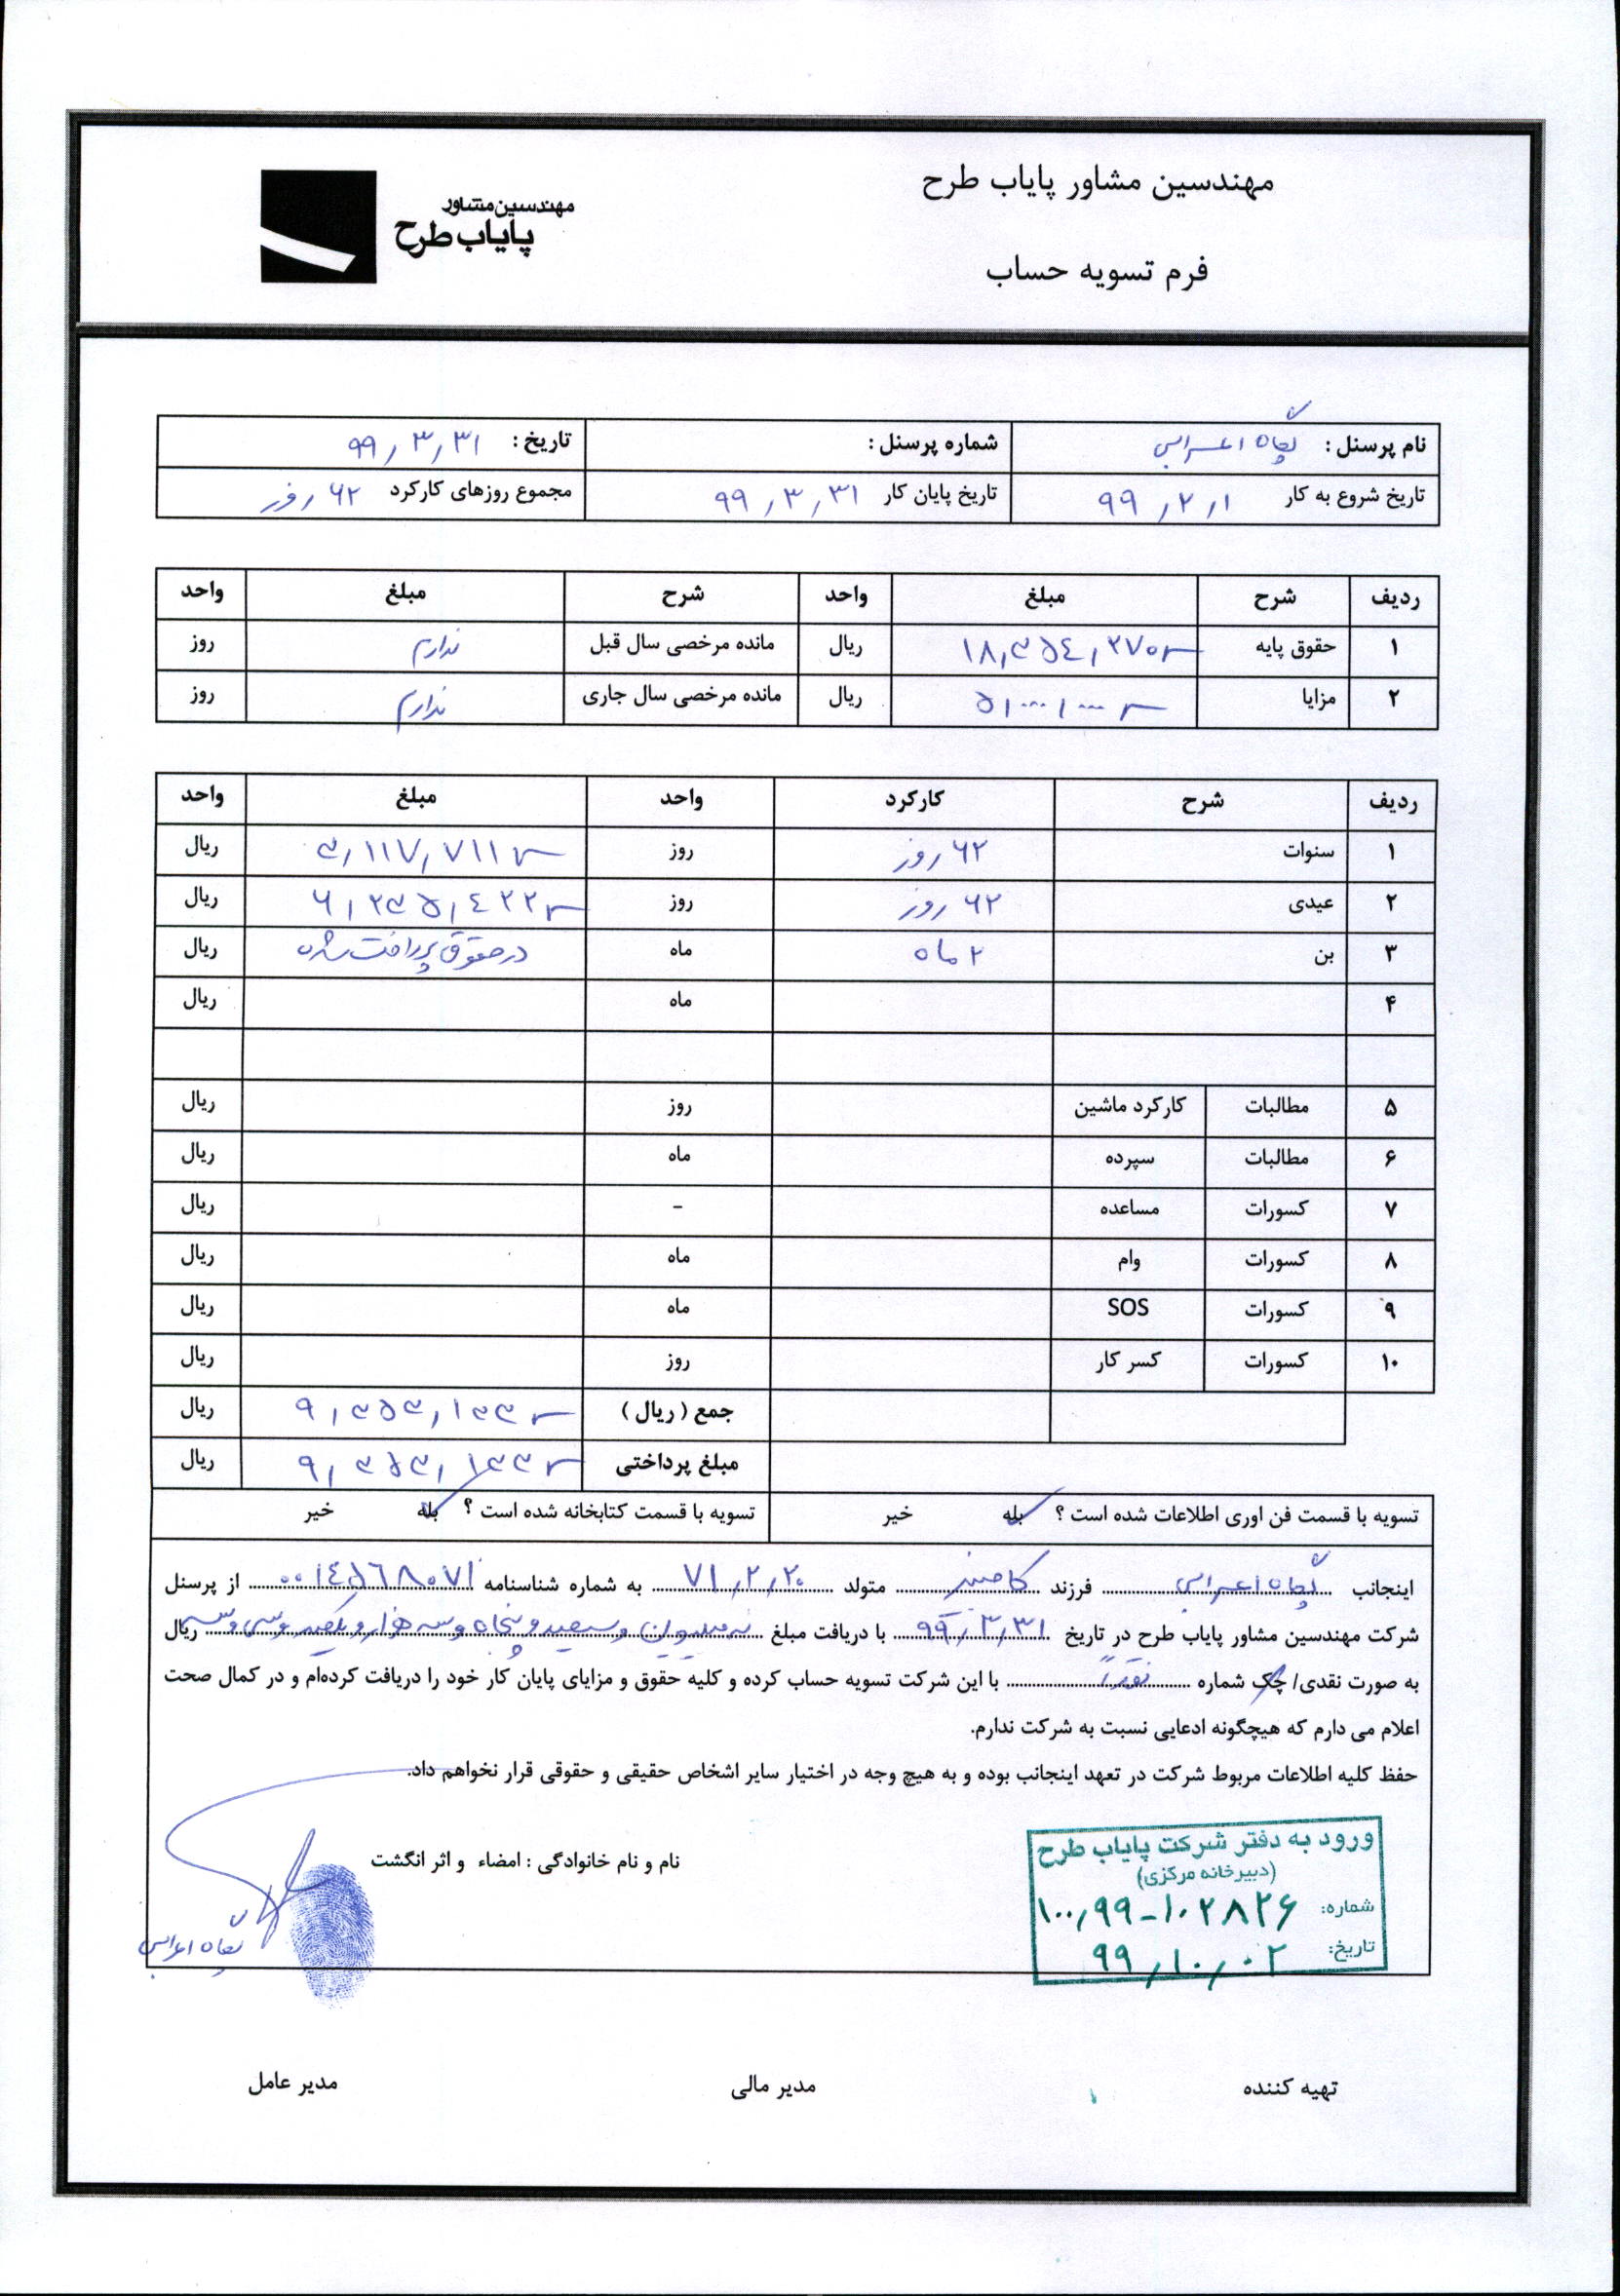 مهندسین مشاور پایاب طرح
مهندسین مشاور
پایاب طرح
فرم تسویه حساب
نام پرسنل : پگاه اعرابی شماره پرسنل : تاریخ : ۹۹/۳/۳۱
تاریخ شروع به کار ۹۹/۲/۱ تاریخ پایان کار ۹۹/۳/۳۱ مجموع روزهای کارکرد ۶۲ روز
ردیف شرح مبلغ واحد شرح مبلغ واحد
۱ حقوق پایه ۱۸,۳۵۴,۲۷۰ ریال مانده مرخصی سال قبل ندارم روز
۲ مزایا ۵,۰۰۰,۰۰۰ ریال مانده مرخصی سال جاری ندارم روز
ردیف شرح کارکرد واحد مبلغ واحد
۱ سنوات ۶۲ روز روز ۳,۱۱۷,۷۱۱ ریال
۲ عیدی ۶۲ روز روز ۶,۲۳۵,۴۲۲ ریال
۳ بن ۲ ماه ماه در حقوق پرداخت شده ریال
۴ ماه ریال
۵ مطالبات کارکرد ماشین روز ریال
۶ مطالبات سپرده ماه ریال
۷ کسورات مساعده - ریال
۸ کسورات وام ماه ریال
۹ کسورات SOS ماه ریال
۱۰ کسورات کسر کار روز ریال
جمع ( ریال ) ۹,۳۵۳,۱۳۳ ریال
مبلغ پرداختی ۹,۳۵۳,۱۳۳ ریال
تسویه با قسمت فن اوری اطلاعات شده است ؟ بله خیر تسویه با قسمت کتابخانه شده است ؟ بله خیر
اینجانب پگاه اعرابی فرزند کامبیز متولد ۷۱/۲/۲۰ به شماره شناسنامه ۰۰۱۴۵۶۸۰۷۱ از پرسنل
شرکت مهندسین مشاور پایاب طرح در تاریخ ۹۹/۳/۳۱ با دریافت مبلغ نه میلیون و سیصد و پنجاه و سه هزار و یکصد و سی و سه ریال
به صورت نقدی/ چک شماره نقداً با این شرکت تسویه حساب کرده و کلیه حقوق و مزایای پایان کار خود را دریافت کرده‌ام و در کمال صحت
اعلام می دارم که هیچگونه ادعایی نسبت به شرکت ندارم.
حفظ کلیه اطلاعات مربوط شرکت در تعهد اینجانب بوده و به هیچ وجه در اختیار سایر اشخاص حقیقی و حقوقی قرار نخواهم داد.
ورود به دفتر شرکت پایاب طرح
(دبیرخانه مرکزی)
شماره: ۱۰۰/۹۹-۱۰۲۸۲۶
تاریخ: ۹۹/۱۰/۰۲
نام و نام خانوادگی : امضاء و اثر انگشت
پگاه اعرابی
تهیه کننده مدیر مالی مدیر عامل